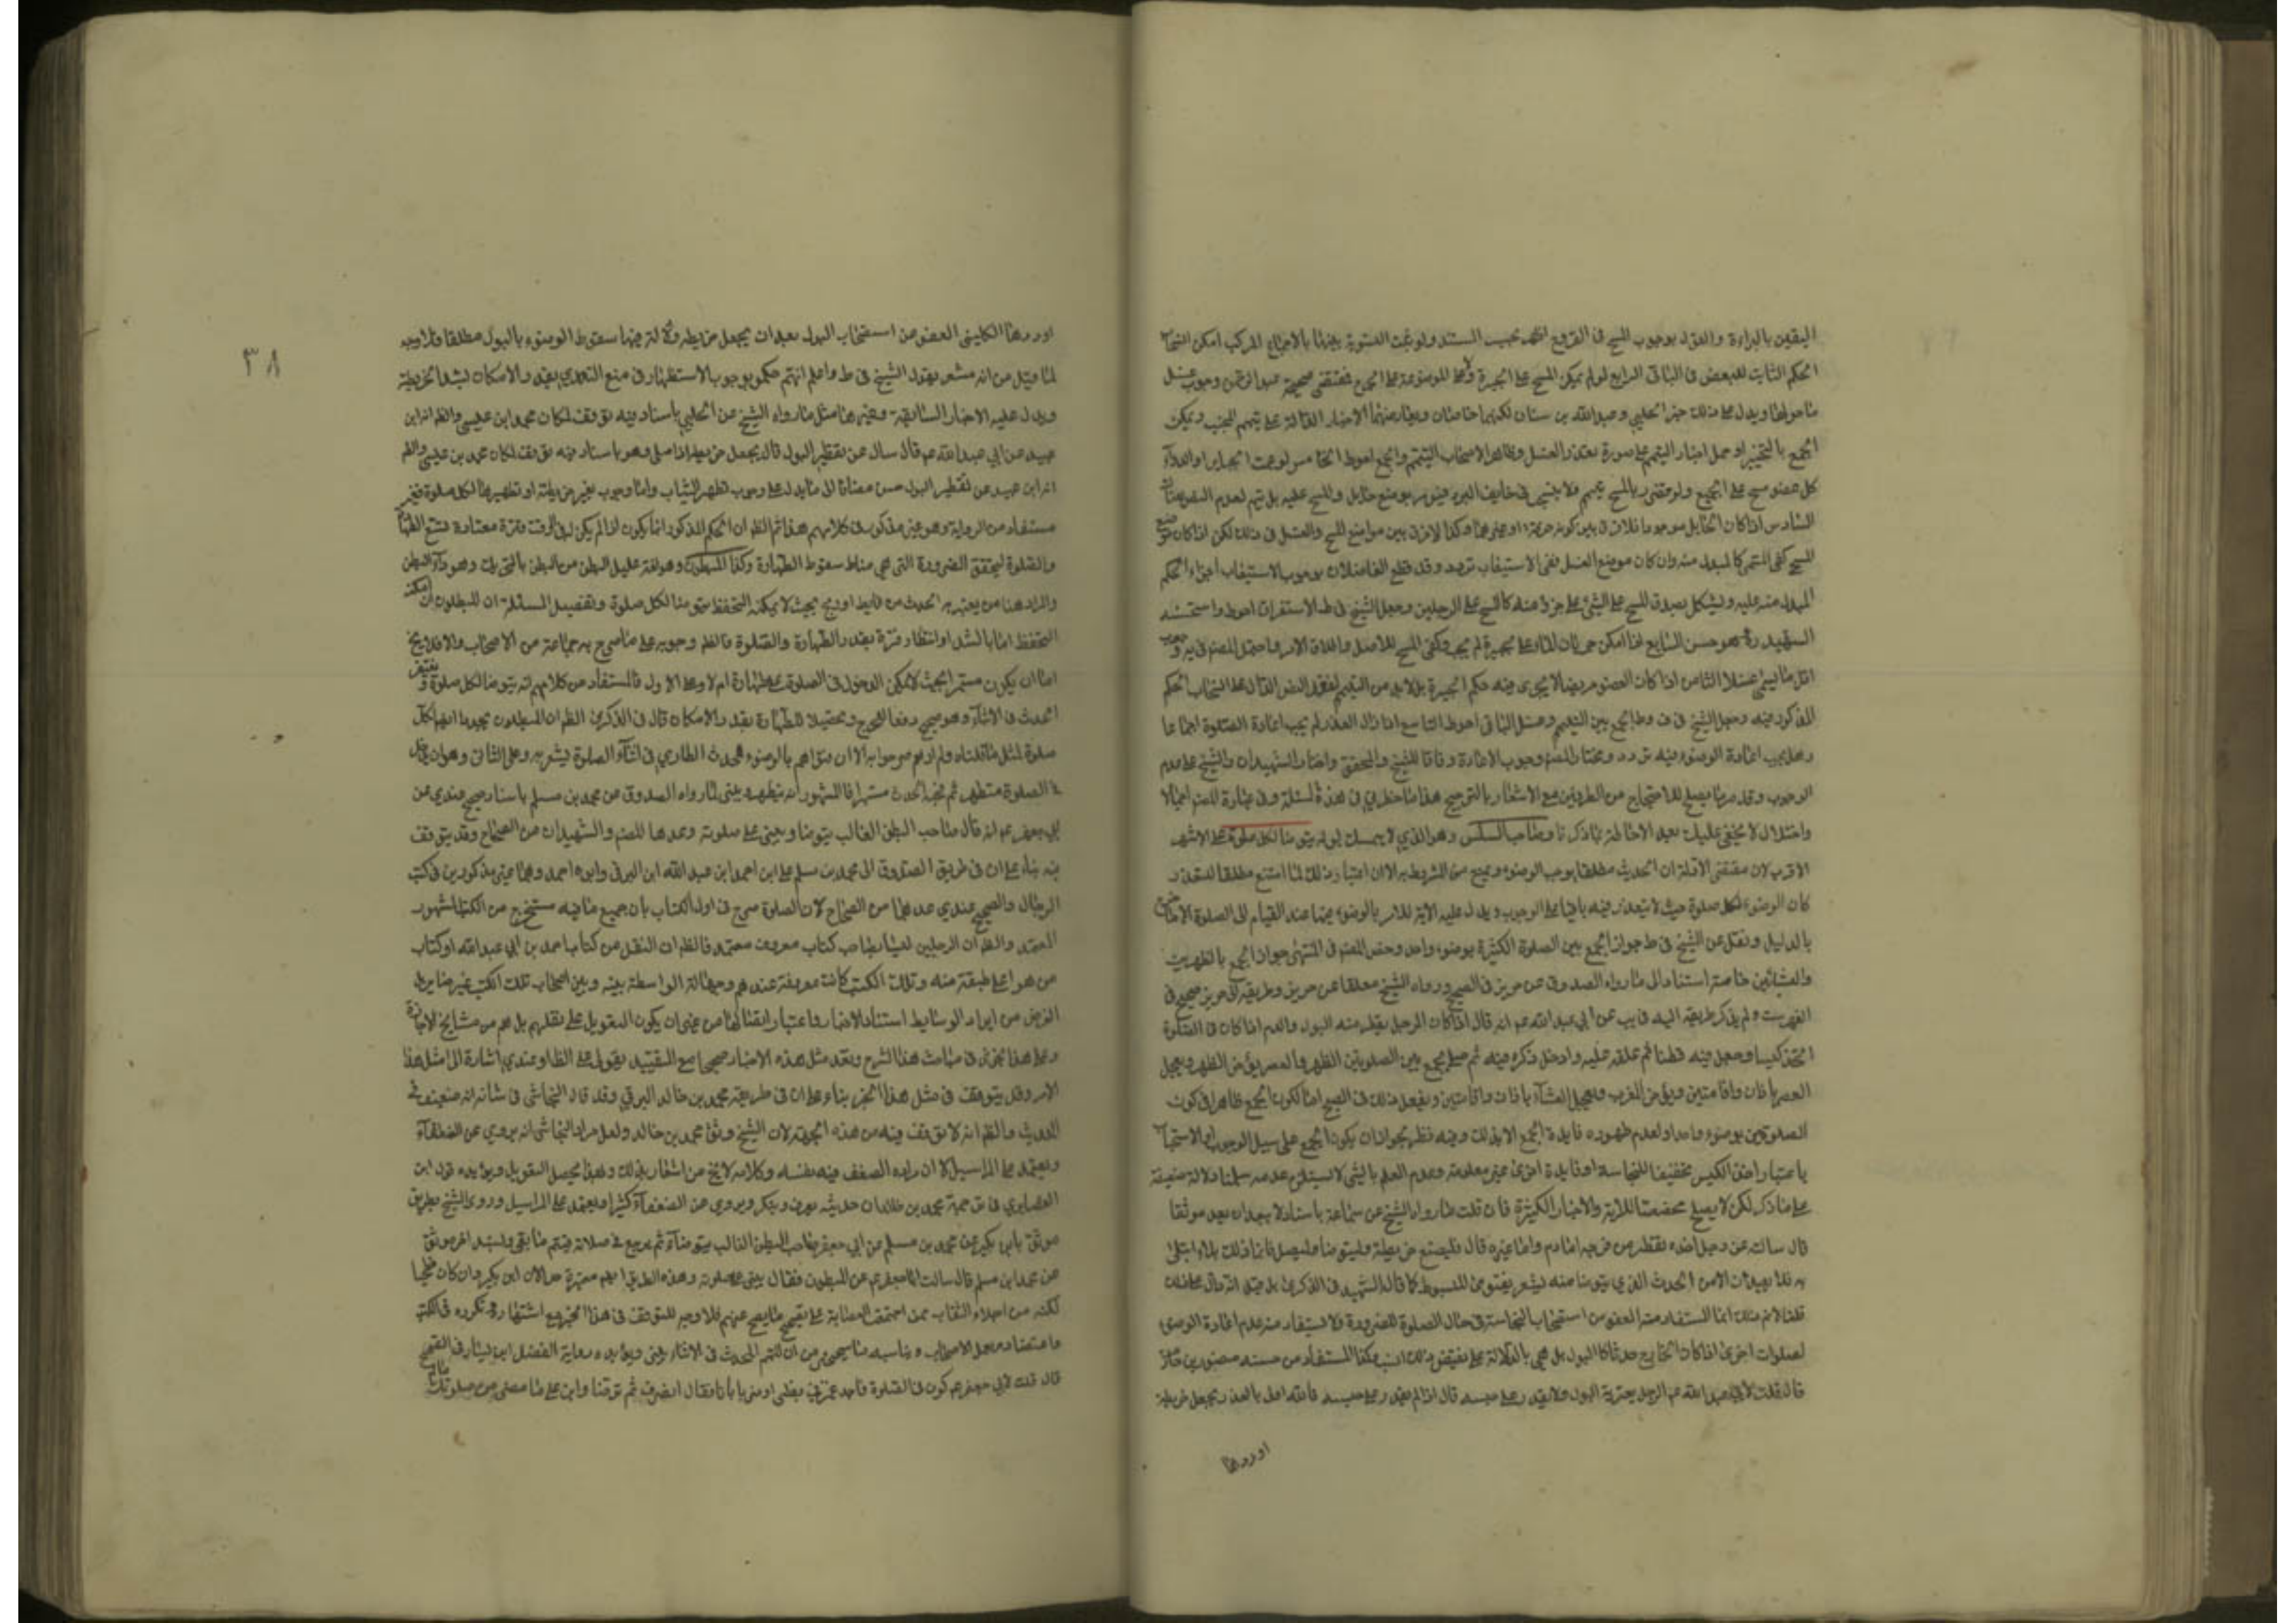 اليقين بالبراءة والقول بوجوب المسح في الفروع بحسب المستند ولو ثبت التسوية بينهما بالاجماع المركب امكن
الحكم الثابت للبعض في الباقي الرابع لو لم يمكن المسح على الجبيرة ولا على الموضوعة على الجرح فمقتضى صحيحة عبد الرحمن وجوب غسل
ما حولها ويدل على ذلك خبر الحلبي وعبد الله بن سنان لكنهما خاصتان ويعارضهما الاخبار الدالة على تيمم الجنب ويمكن
الجمع بالتخيير او حمل اخبار التيمم على صورة تعذر الغسل وظاهر الاصحاب التيمم والجمع احوط الخامس لو عمت الجباير او الدواء
كل عضو مسح على الجميع ولو تضرر بالمسح تيمم ولا ينسحب في خايف البرد فيؤمر بوضع حايل والمسح عليه بل تيمم لعدم
السادس اذا كان الحايل موجودا فلا فرق بين كونه خرقة او غيرها وكذا لا فرق بين مواضع المسح والغسل في ذلك لكن اذا كان موضع
المسح كفى المسمى كالمبدل منه وان كان موضع الغسل ففي الاستيعاب تردد وقد قطع الفاضلان بوجوب الاستيعاب اجراء الحكم
المبدل منه عليه ويشكل بصدق المسح على الشيء على جزء منه كالمسح على الرجلين وجعل الشيخ في ط الاستغراق احوط واستحسنه
الشهيد ره وهو حسن السابع اذا امكن جريان الماء على جبيرة لم يجب وكفى المسح للاصل واطلاق الامر واحتمل المصنف في يه وجوب
اقل ما يسمى غسلا الثامن اذا كان العضو مريضا لا يجري فيه حكم الجبيرة بل لابد من التيمم لفقد النص الدال على انسحاب الحكم
المذكور فيه وجعل الشيخ في ف وط الجمع بين التيمم وغسل الباقي احوط التاسع اذا زال العذر لم يجب اعادة الصلوة اجماعا
وهل يجب اعادة الوضوء فيه تردد ومختار المصنف وجوب الاعادة وفاقا للشيخ والمحقق واختار الشهيدان والشيخ علي عدم
الوجوب وقد مر ما يصلح للاحتجاج من الطرفين مع الاشعار بالترجيح هذا ما خطر لي في هذه المسئلة وفي عبارة المصنف اجمالا
واختلال لا يخفى عليك بعد الاحاطة بما ذكرنا وصاحب السلس وهو الذي لا يمسك بوله يتوضأ لكل صلوة على الاشهر
الاقرب لان مقتضى الادلة ان الحدث مطلقا يوجب الوضوء ويمنع من المشروط به الا ان اعتبار ذلك لما امتنع مطلقا للتعذر
كان الوضوء لكل صلوة حيث لا يتعذر فيه باقيا على الوجوب ويدل عليه الاية للامر بالوضوء فيها عند القيام الى الصلوة الا ما خرج
بالدليل ونقل عن الشيخ في ط جواز الجمع بين الصلوة الكثيرة بوضوء واحد وخص المصنف في المنتهى جواز الجمع بالظهرين
والعشائين خاصة استنادا الى ما رواه الصدوق عن حريز في الصحيح ورواه الشيخ معلقا عن حريز وطريقه الى حريز صحيح في
الفهرست ولم يذكر طريقه اليه في يب عن ابي عبد الله عم انه قال اذا كان الرجل يقطر منه البول والدم اذا كان في الصلوة
اتخذ كيسا وجعل فيه قطنا ثم علقه عليه وادخل ذكره فيه ثم صلى يجمع بين الصلوتين الظهر والعصر يؤخر الظهر ويعجل
العصر باذان واقامتين ويؤخر المغرب ويعجل العشاء باذان واقامتين ويفعل ذلك في الصبح لكون الجمع ظاهرا في كون
الصلوتين بوضوء واحد ولعدم ظهور فايدة الجمع الا بذلك وفيه نظر لجواز ان يكون الجمع على سبيل الوجوب او الاستحباب
باعتبار اخذ الكيس تخفيفا للنجاسة او فايدة اخرى غير معلومة وعدم العلم بالشيء لا يستلزم عدمه سلمنا دلالة ضعيفة
على ما ذكر لكن لا يصلح مخصصا للاية والاخبار الكثيرة فان قلت ما رواه الشيخ عن سماعة باسناد لا يبعد ان يعد موثقا
قال سألته عن رجل اخذه تقطير من فرجه اما دم واما غيره قال فليصنع خريطة وليتوضأ وليصل فانما ذلك بلاء ابتلى
به فلا يعيدن الا من الحدث الذي يتوضأ منه يشعر بفتوى المبسوط كما قال الشهيد في الذكرى بل قيل انه دال على ذلك
قلنا لا نم ذلك انما المستفاد منه العفو من استصحاب النجاسة في حال الصلوة للضرورة فلا يستفاد منه عدم اعادة الوضوء
لصلوات اخرى اذا كان الخارج حدثا كالبول بل هي بالدلالة على نقيض ذلك انسب وكذا المستفاد من حسنه منصور بن حازم
قال قلت لابي عبد الله عم الرجل يعتريه البول ولا يقدر على حبسه قال اذا لم يقدر على حبسه فالله اولى بالعذر يجعل خريطة
اوردها
٣٨
اوردها الكليني العفو من استصحاب البول بعد ان يجعل خريطة ولا دلالة فيها سقوط الوضوء بالبول مطلقا فلا وجه
لما قيل من انه مشعر بقول الشيخ في ط واعلم انهم حكموا بوجوب الاستظهار في منع التعدي بقدر الامكان لشد الخريطة
ويدل عليه الاخبار السابقة وغيرها مثل ما رواه الشيخ عن الحلبي باسناد فيه توقف لمكان محمد ابن عيسى والظ انه ابن
عبيد عن ابي عبد الله عم قال سال عن تقطير البول قال يجعل خريطة اذا صلى وهو باسناد فيه توقف لمكان محمد بن عيسى والظ
انه ابن عبيد عن تقطير البول واما وجوب تغير خريطة او تطهيرها لكل صلوة فغير
مستفاد من الرواية وهو غير مذكور في كلامهم هذا ثم الظ ان الحكم المذكور انما يكون اذا لم يكن له في الوقت فترة معتادة تسع الطهارة
والصلوة ليتحقق الضرورة التي هي مناط سقوط الطهارة وكذا المبطون وهو لغة عليل البطن من البطن بالتحريك وهو داء البطن
والمراد هنا من يعتريه الحدث من غايط او ريح بحيث لا يمكنه التحفظ يتوضأ لكل صلوة وتفصيل المسئلة ان المبطون ان امكنه
التحفظ اما بالشد او انتظار فترة بقدر الطهارة والصلوة فالظ وجوبه على ما صرح به جماعة من الاصحاب والا فلا يخ
اما ان يكون مستمرا بحيث لا يمكن الدخول في الصلوة على طهارة ام لا وعلى الاول فالمستفاد من كلامهم انه يتوضأ لكل صلوة ويغتفر
الحدث في الاثناء وهو صحيح دفعا للحرج وتحصيلا للطهارة بقدر الامكان قال في الذكرى الظ ان المبطون يجدد ايضا لكل
صلوة لمثل ما قلناه ولم ارهم صرحوا به الا ان فتواهم بالوضوء للحدث الطاري في اثناء الصلوة يشعر به وعلى الثاني وهو ان يدخل
في الصلوة متطهرا ثم فجأه الحدث مستمرا فالمشهور انه يتطهر ويبني لما رواه الصدوق عن محمد بن مسلم باسناد صحيح عندي عن
ابي جعفر عم انه قال صاحب البطن الغالب يتوضأ ويبني على صلوته وعدها المصنف والشهيدان من الصحاح وقد يتوقف
فيه بناء على ان في طريق الصدوق الى محمد بن مسلم علي ابن احمد ابن عبد الله ابن البرقي وابوه احمد وهما غير مذكورين في كتب
الرجال والصحيح عندي عدهما من الصحاح لان الصدوق صرح في اول الكتاب بان جميع ما فيه مستخرج من الكتب المشهور
المعتمد والظ ان الرجلين ليسا بصاحب كتاب معروف معتمد فالظ ان النقل من كتاب احمد بن ابي عبد الله او كتاب
من هو اعلى طبقة منه وتلك الكتب كانت معروفة عندهم وجهالة الواسطة بينه وبين اصحاب تلك الكتب غير ضاير
الغرض من ايراد الوسايط استناد الاخبار واعتبار اتصالها من غير ان يكون التعويل على نقلهم بل هم من مشايخ الاجازة
وعلى هذا نجري في مباحث هذا الشرح ونعد مثل هذه الاخبار صحيحا مع التقييد بقولي على الظ او عندي اشارة الى امثل هذا
الامر وقد يتوقف في مثل هذا الخبر بناء على ان في طريقه محمد بن خالد البرقي وقد قال النجاشي في شانه انه ضعيف في
الحديث والظ انه لا توقف فيه من هذه الجهة لان الشيخ وثق محمد بن خالد ولعل مراد النجاشي انه يروي عن الضعفاء
ويعتمد على المراسيل لا ان يراد الضعف فيه نفسه وكلامه لا يخ من اشعار بذلك وبهذا يحصل التعويل ويؤيده قول ابن
الغضايري في ترجمة محمد بن خالد ان حديثه يعرف وينكر ويروي عن الضعفاء كثيرا ويعتمد على المراسيل وروى الشيخ بطريق
موثق بابن بكير عن محمد بن مسلم عن ابي جعفر صاحب البطن الغالب يتوضأ ثم يرجع في صلاته فيتم ما بقي وبسند اخر موثق
عن محمد ابن مسلم قال سالت ابا جعفر عم عن المبطون فقال يبني على صلوته وهذه الطريق ايضا معتبرة حال ابن بكير وان كان فطحيا
لكنه من اجلاء الثقات ممن اجتمعت العصابة على تصحيح ما يصح عنهم فلا وجه للتوقف في هذا الخبر مع اشتهاره وتكرره في الكتب
واعتضاده بعمل الاصحاب ويناسبه ما سيجيء من ان المتيمم المحدث في الاثناء يبني ويؤيده رواية الفضل ابن يسار في الصحيح
قال قلت لابي جعفر عم اكون في الصلوة فاجد غمزا في بطني او اذى او ضربانا فقال انصرف ثم توضأ وابن على ما مضى من صلوتك